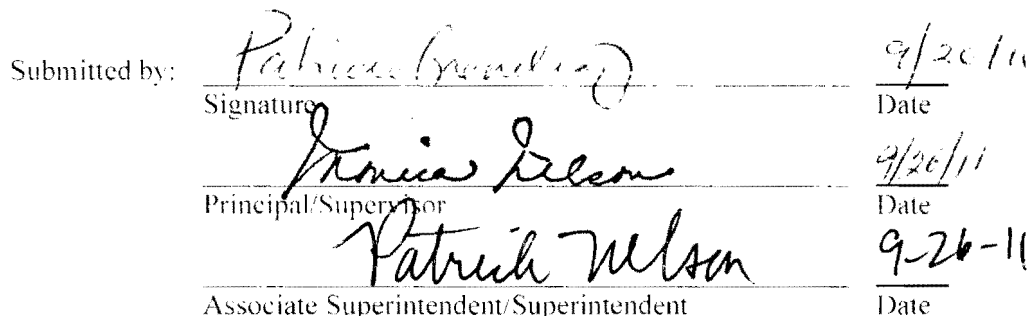 Submitted by: Patricia 9/20/11
Signature Date
Monica Nelson 9/20/11
Principal/Supervisor Date
Patrick Nelson 9-26-11
Associate Superintendent/Superintendent Date